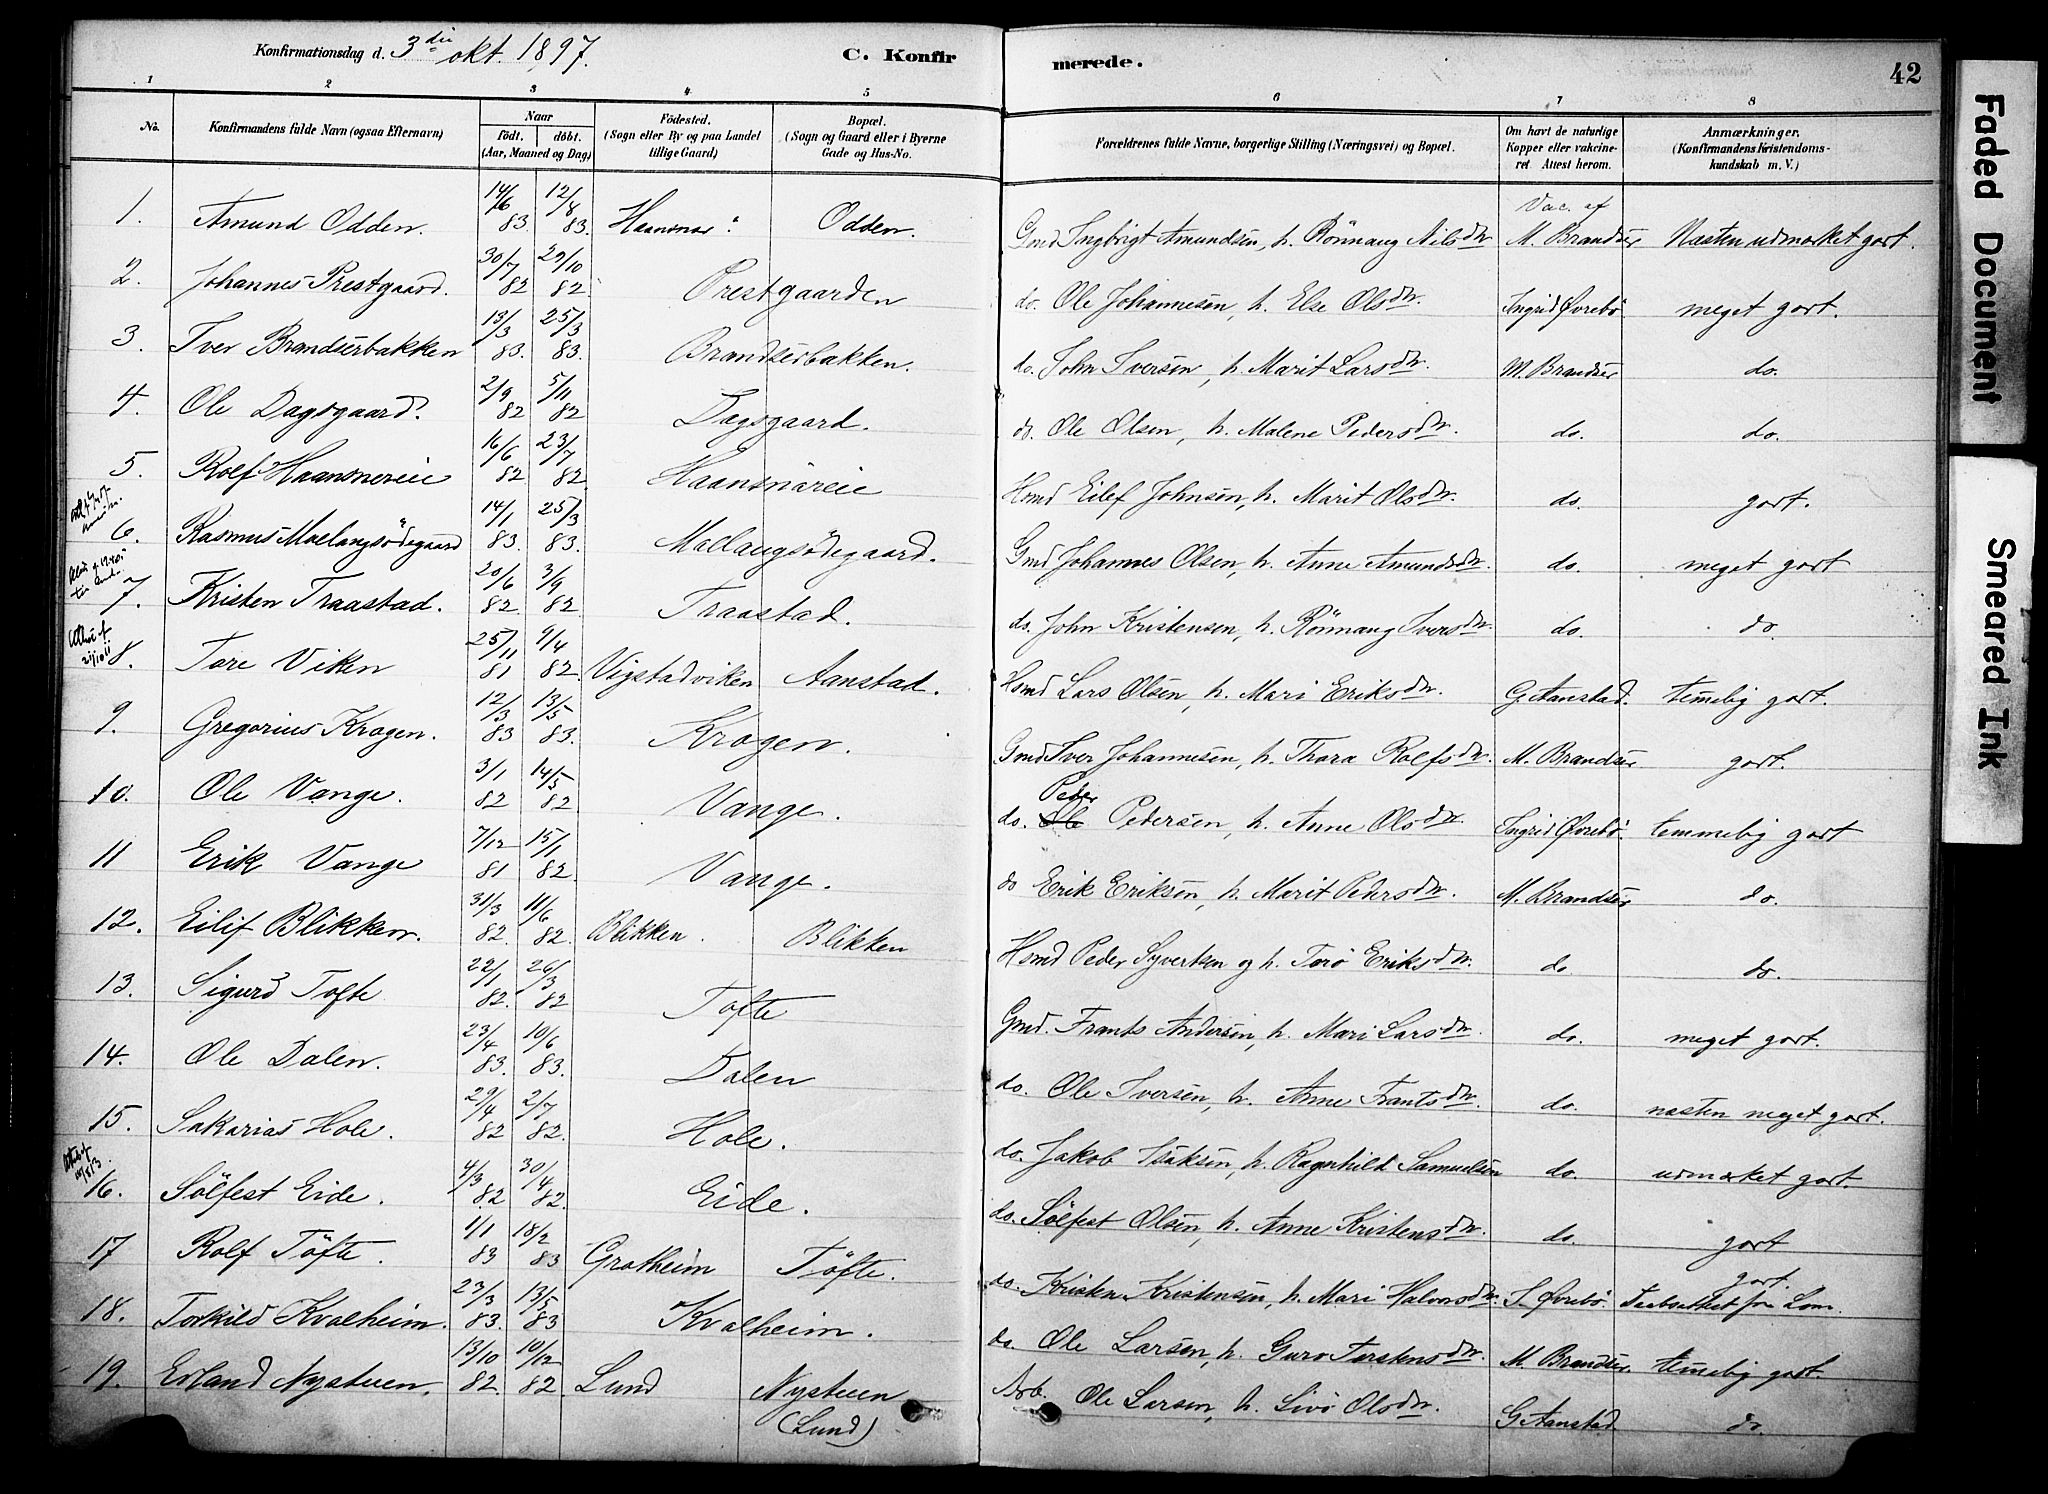 Konfirmationsdag d. 3die okt. 1897.
C. Konfirmerede.
42
1 2 3 4 5 6 7 8
No.
Konfirmandens fulde Navn (ogsaa Efternavn)
Naar
födt. döbt.
(Aar, Maaned og Dag)
Födested.
(Sogn eller By og paa Landet tillige Gaard)
Bopæl.
(Sogn og Gaard eller i Byerne Gade og Hus-No.
Forældrenes fulde Navne, borgerlige Stilling (Næringsvei) og Bopæl.
Om havt de naturlige Kopper eller vakcineret. Attest herom.
Anmærkninger.
(Konfirmandens Kristendomskundskab m. V.)
1. Amund Odden. 14/6 83. 12/8 83. Haansnar: Odden. Gmd Ingbrigt Amundsen, h. Rönnaug Nilsdtr Vac. af M. Brandser Næsten udmærket godt.
2. Johannes Prestgaard. 30/7 82 29/10 82. Prestgaarden do. Ole Johannesen, h. Else Olsdtr. Ingrid Øvrebö meget godt.
3. Iver Brandserbakken 13/3 83. 25/3 83. Brandserbakken. do. John Iversen, h. Marit Larsdtr. M. Brandser do.
4. Ole Dagsgaard. 2/9 82 5/11 82 Dagsgaard. do. Ole Olsen, h. Malene Pedersdtr. do. do.
5. Rolf Haansnereie 16/6 82 23/7 82. Haansnäreie Hsmd Eilef Johnsen, h. Marit Olsdtr. do. godt.
6. Rasmus Mælangsödegaard 14/1 83. 25/3 83. Mælangsödegaard. Gmd Johannes Olsen, h. Anne Amundsdtr. do. meget godt
7. Kristen Traastad. 20/6 82 3/9 82 Traastad. do. John Kristensen, h. Rönnaug Iversdtr. do. do
8. Tore Viken 25/11 81 9/4 82. Vigstadviken Aanstad. Hsmd Lars Olsen, h. Mari Eriksdtr. G. Aanstad. temelig godt.
9. Gregorius Kragen. 12/3 83 13/5 83. Kragen. Gmd Iver Johannesen, h. Thora Rolfsdtr. M. Brandser godt.
10. Ole Vange. 3/1 82 14/5 82 Vange. do. Peder Pedersen, h. Anne Olsdtr. Ingrid Øvrebö. temmelig godt
11 Erik Vange 7/12 81 15/1 82. Vange. do Erik Eriksen, h. Marit Pedersdtr. M. Brandser do.
12. Eilif Blikken. 31/3 82. 11/6 82. Blikken. Blikken Hsmd Peder Syvertsen og h. Torö Eriksdtr. do do.
13. Sigurd Tofte 22/1 82. 26/3 82 Tofte Gmd. Frants Andersen, h. Mari Larsdtr. do. meget godt.
14. Ole Dalen. 23/4 83. 10/6 83. Dalen do. Ole Iversen, h. Anne Frantsdtr. do. næsten meget godt.
15. Sakarias Hole. 29/4 82 2/7 82. Hole. do. Jakob Isaksen, h. Ragnhild Samuelsen do. udmærket godt.
16. Sölfest Eide. 4/3 82 30/4 82. Eide. do. Sölfest Olsen, h. Anne Kristensdtr. do. godt
17 Rolf Töfte. 1/1 83 18/2 83 Grotheim Töfte. do. Kristen Kristensen, h. Mari Halvorsdtr. I. Øvrebö. godt. fra Lom.
18. Torkild Kvalheim. 23/3 83. 13/5 83 Kvalheim. do. Ole Larsen, h. Guro Torstensdtr. M. Brandser temelig godt.
19. Erland Nystuen. 13/10 82. 10/12 82. Lund Nystuen (Lund) Arb. Ole Larsen, h. Livö Olsdtr. G. Aanstad. do.
Faded Document
Smeared Ink